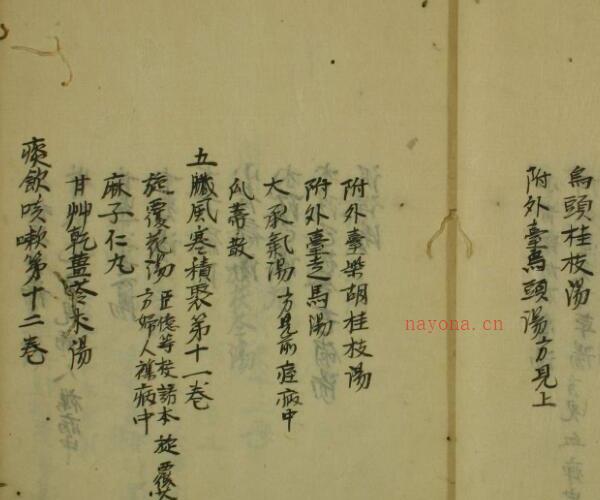 烏頭桂枝湯
附外臺烏頭湯方見上
附外臺柴胡桂枝湯
附外臺走馬湯
大承氣湯方見前痙病中
瓜蒂散
五臟風寒積聚第十一巻
旋覆花湯臣億等校諸本旋覆
方婦人雜病中
麻子仁丸
甘艸乾薑苓朮湯
痰飲咳嗽第十二巻
nayona.cn